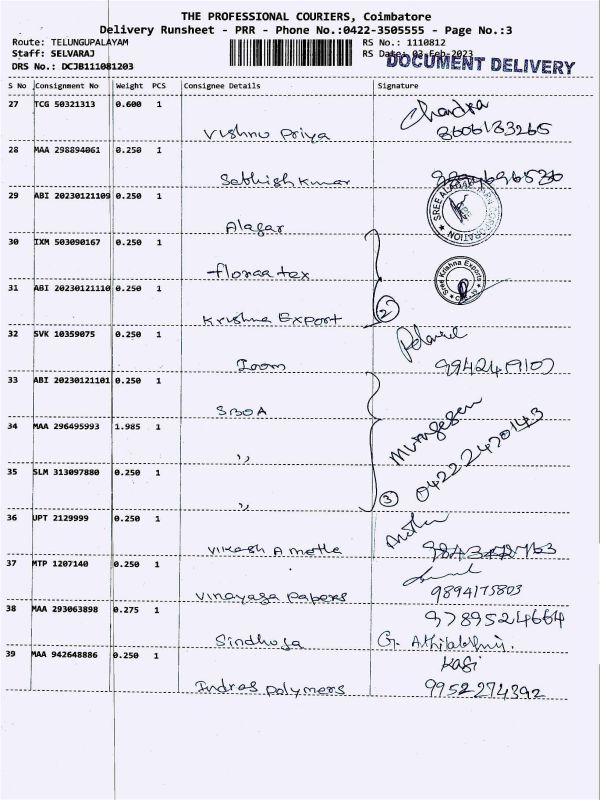 THE PROFESSIONAL COURIERS, Coimbatore
Delivery Runsheet - PRR - Phone No.:0422-3505555 - Page No.:3
Route: TELUNGUPALAYAM RS No.: 1110812
Staff: SELVARAJ RS Date: 03-Feb-2023
DOCUMENT DELIVERY
DRS No.: DCJB111081203
S No Consignment No Weight PCS Consignee Details Signature
27 TCG 50321313 0.600 1 Chandra
Vishnu Priya 8606183265
28 MAA 298894061 0.250 1
Sabhish kumar
29 ABI 20230121109 0.250 1
Alagar
30 IXM 503090167 0.250 1
floraa tex
Sree Krishna Exports
31 ABI 20230121110 0.250 1
Krishna Export 2
32 SVK 10359075 0.250 1
9942419107
33 ABI 20230121101 0.250 1
SBOA
34 MAA 296495993 1.985 1 Murugesan
,, 04222470143
35 SLM 313097880 0.250 1
,, 3
36 UPT 2129999 0.250 1
37 MTP 1207140 0.250 1
Vinayaga Papers 9894175803
38 MAA 293063898 0.275 1 9789524664
G.
39 MAA 942648886 0.250 1 Kasi
Indras polymers 9952274392